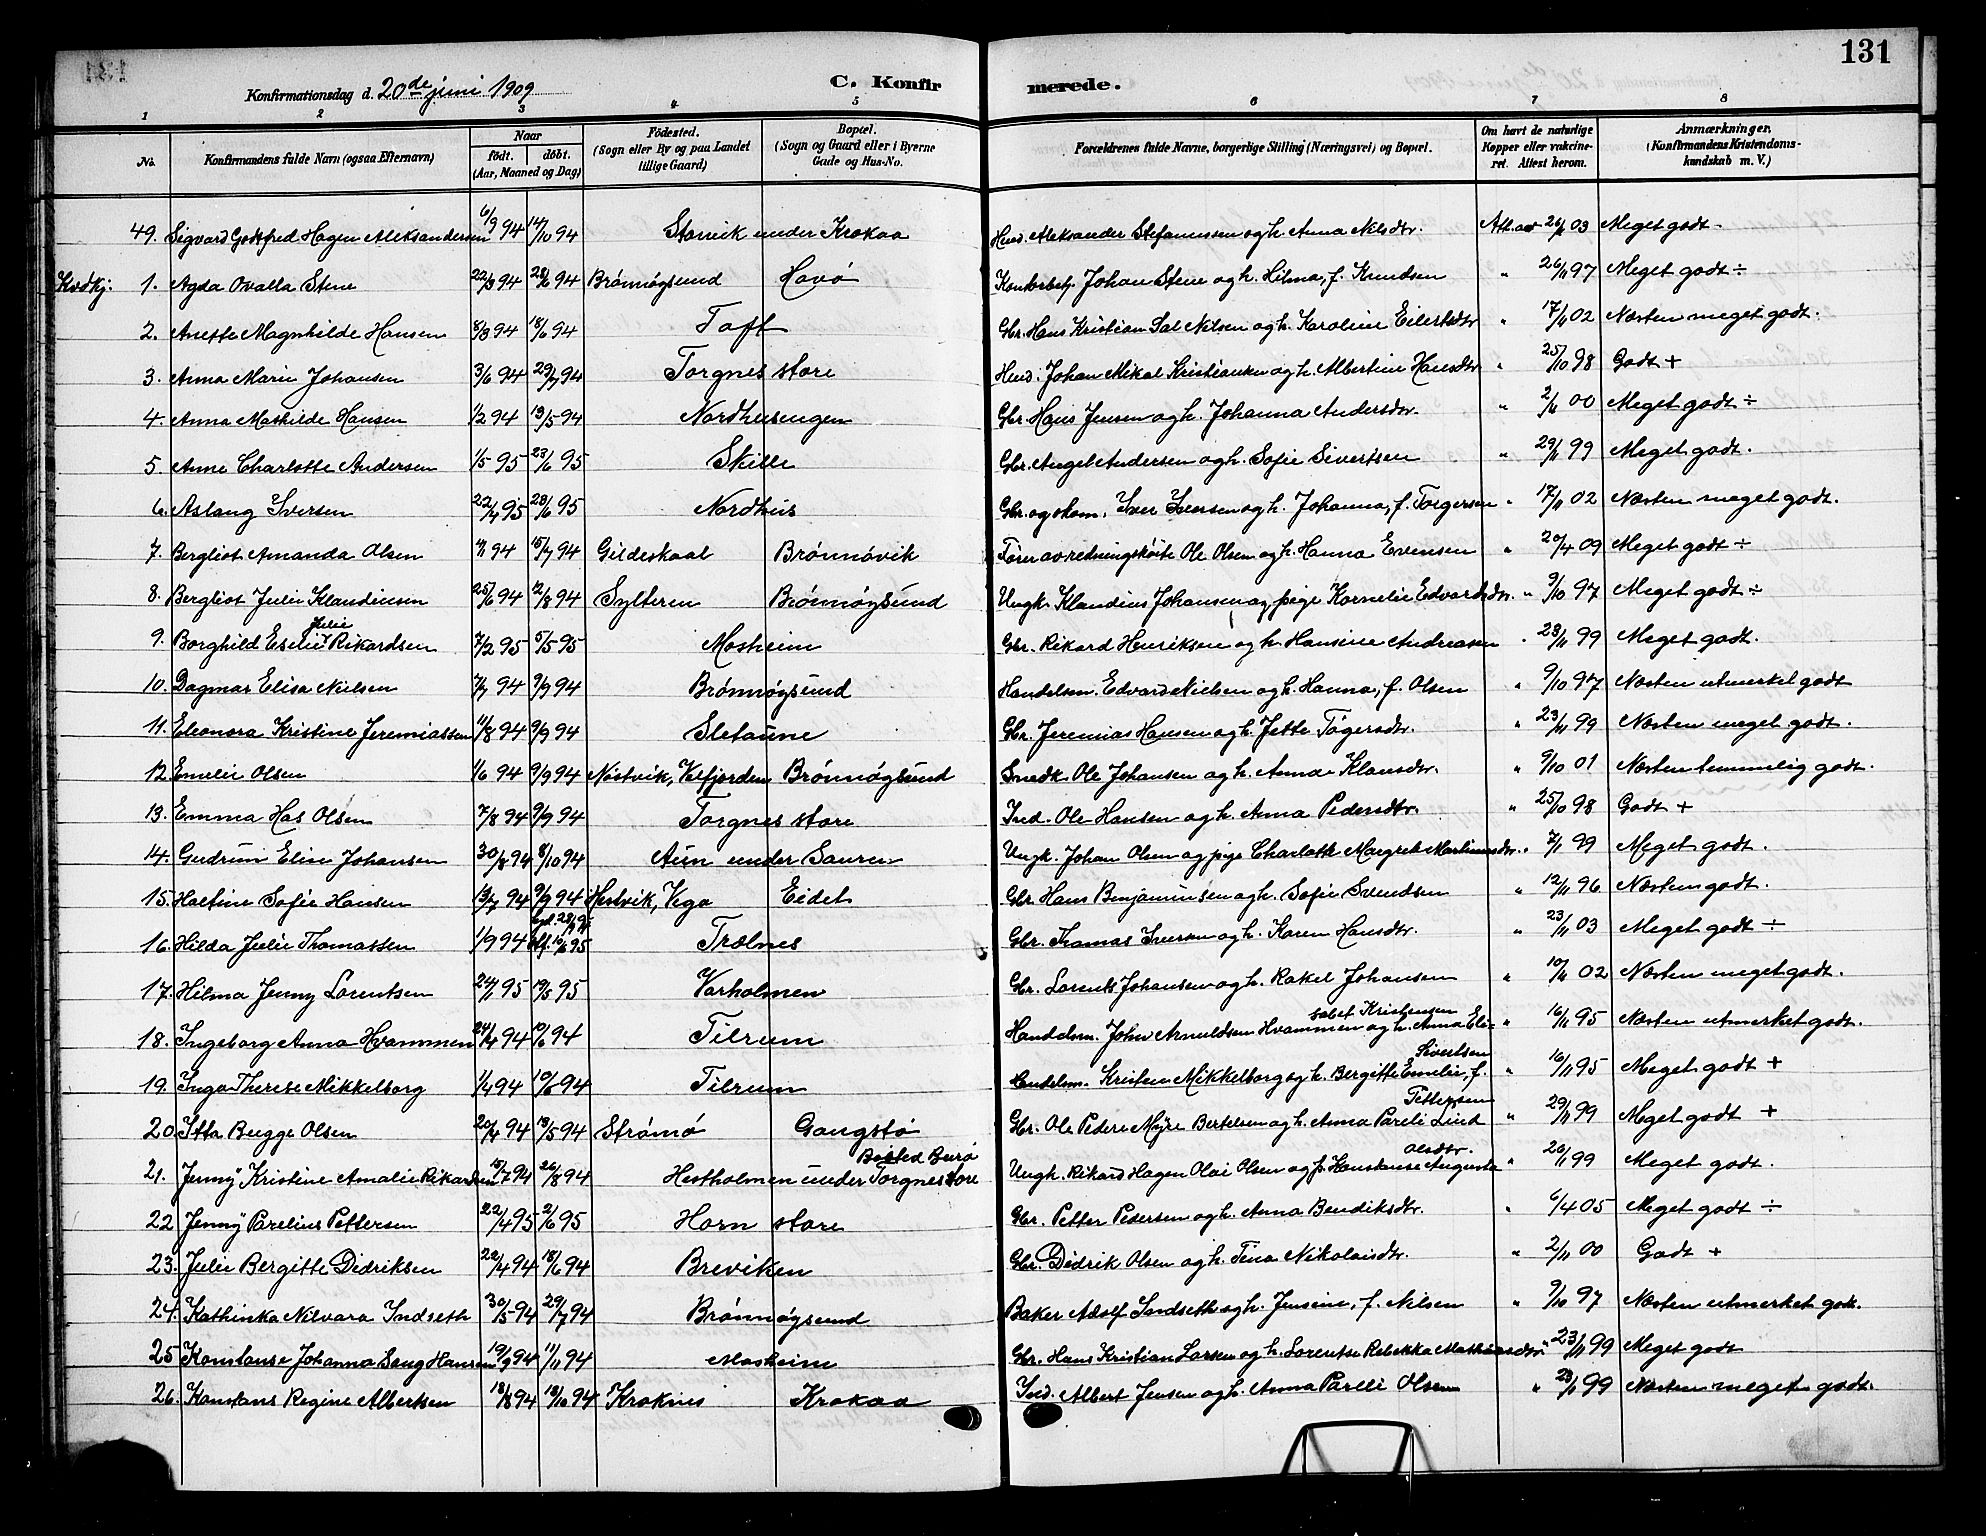 131
Konfirmationsdag d. 20de juni 1909
C. Konfirmerede.
1 2 3 4 5 6 7 8
No. Konfirmandens fulde Navn (ogsaa Efternavn) Naar født. døbt. (Aar, Maaned og Dag) Fødested. (Sogn eller By og paa Landet tillige Gaard) Bopæl. (Sogn og Gaard eller i Byerne Gade og Hus-No. Forældrenes fulde Navne, borgerlige Stilling (Næringsvei) og Bopæl. Om havt de naturlige Kopper eller vakcineret. Attest herom. Anmærkninger. (Konfirmandens Kristendomskundskab m. V.)
49. Sigvard Godtfred Hagen Aleksandersen 6/9 94 14/10 94 Storvik under Krokaa Aleksander Stefanussen og h. Anna Nilsdtr. Att. av 26/2 03 Meget godt
1. Agda Ovalla Stene 22/3 94 28/6 94 Brønnøysund Havø Johan Stene og h. Hilma, f. Knudsen " 26/11 97 Meget godt ÷
2. Anette Magnhilde Hansen 8/3 94 18/6 94 Toft Gbr. Hans Kristian Sal Nilsen og h. Karoline Eilertsdtr " 17/11 02 Næsten meget godt.
3. Anna Marie Johansen 3/6 94 29/7 94 Torgnes store Johan Mikal Kristiansen og h. Albertine Hansdtr " 25/10 98 Godt +
4. Anna Mathilde Hansen 1/2 94 13/5 94 Nordhusengen Gbr. Hans Jensen og h. Johanna Andersdtr. " 2/11 00 Meget godt ÷
5 Anne Charlotte Andersen 1/5 95 23/6 95 Skille Gbr. Angel Andersen og h. Sofie Sivertsen " 29/11 99 Meget godt.
6. Aslaug Iversen 22/4 95 28/6 95 Nordhus Gbr. og skom. Iver Iversen og h. Johanna, f. Torgersen " 17/11 02 Næsten meget godt.
7. Bergliot Amanda Olsen 94 15/7 94 Gildeskaal Brønnøvik Fører av redningskøite Ole Olsen og h. Hanna Evensen " 20/4 09 Meget godt ÷
8. Bergliot Julie Klaudiusen 25/6 94 12/8 94 Sylteren Brønnøysund Ungk. Klaudius Johansen og pige Kornelie Edvardsdtr. " 9/10 97 Meget godt ÷
9. Borghild Eselie Julie Rikardsen 7/2 95 5/5 95 Mosheim Gbr. Rikard Henriksen og h. Hansine Andreasen " 28/11 99 Meget godt.
10. Dagmar Elisa Nielsen 7/7 94 9/9 94 Brønnøysund Handelsm. Edvard Nielsen og h. Hanna, f. Olsen " 9/10 97 Næsten utmerket godt
11. Eleonora Kristine Jeremiassen 11/8 94 9/9 94 Sletaune Gbr. Jeremias Hansen og h. Jette Tøgersdtr. " 23/11 99 Næsten meget godt.
12. Emelie Olsen 1/6 94 9/9 94 Nøstvik, Velfjorden Brønnøysund Snedk. Ole Johansen og h. Anna Klausdtr. " 9/10 01 Næsten temmelig godt.
13. Emma Has Olsen 7/8 94 9/9 94 Torgnes store Ind. Ole Hansen og h. Anna Pedersdtr. " 25/10 98 Godt +
14. Gudrun Elise Johansen 30/8 94 8/10 94 Aun under Sauren Ungk. Johan Olsen og pige Charlotte Margrete Martinusdtr. " 7/11 99 Meget godt.
15. Haltine Sofie Hansen 13/7 94 9/9 94 Hestvik, Vega Eidet Gbr Hans Benjaminsen og h. Sofie Svendsen " 12/11 96 Næsten godt.
16. Hilda Julie Thomassen 1/9 94 95 Trælnes Gbr. Thomas Iversen og h. Karen Hansdtr. " 23/11 03 Meget godt ÷
17. Hilma Jenny Lorentsen 24/1 95 19/5 95 Varholmen Gbr. Lorents Johansen og h. Rakel Johansen " 10/11 02 Næsten meget godt.
18. Ingeborg Anna Hvammen 24/4 94 10/6 94 Tilrum Handelsm. John Arnuldsen Hvammen og h. Anna Elisabet Kristensen " 16/11 95 Næsten utmerket godt.
19. Inga Therese Mikkelborg 1/4 94 10/6 94 Tilrum Handelsm. Kristen Mikkelborg og h. Bergitte Emelie, f. Sivertsen " 16/11 95 Meget godt +
20. Itta Bugge Olsen 20/4 94 13/5 94 Strømø Gangstø Gbr. Ole Peder Myre Bertelsen og h. Anna Pareli Lind Pettersen " 29/11 99 Meget godt +
21. Jenny Kristine Amalie Rikardsen 15/7 94 26/8 94 Hestholmen under Torgnes store Bosted Burø Ungk. Rikard Hagen Olai Olsen og p. Konstanse Augusta Olsdtr " 20/11 99 Meget godt.
22 Jenny Parelius Pettersen 22/4 95 2/6 95 Horn store Gbr. Petter Pedersen og h. Anna Bendiksdtr. " 6/4 05 Meget godt ÷
23. Julie Bergitte Didriksen 22/4 94 18/6 94 Breviken Gbr. Didrik Olsen og h. Tina Nikolaisdtr. " 2/11 00 Godt +
24. Kathinka Nilvara Indseth 30/5 94 29/7 94 Brønnøysund Baker Adolf Indseth og h. Jensine, f. Nilsen " 9/10 97 Næsten utmerket godt.
25 Konstanse Johanna Saug Hansen 19/9 94 11/11 94 Mosheim Gbr. Hans Kristian Larsen og h. Lorentse Rebekka Mathiasdtr " 23/11 99 Meget godt
26. Konstans Regine Albertsen 18/8 94 18/10 94 Kroknes Krokaa Ind. Albert Jensen og h. Anna Pareli Olsen " 99 Næsten meget godt.